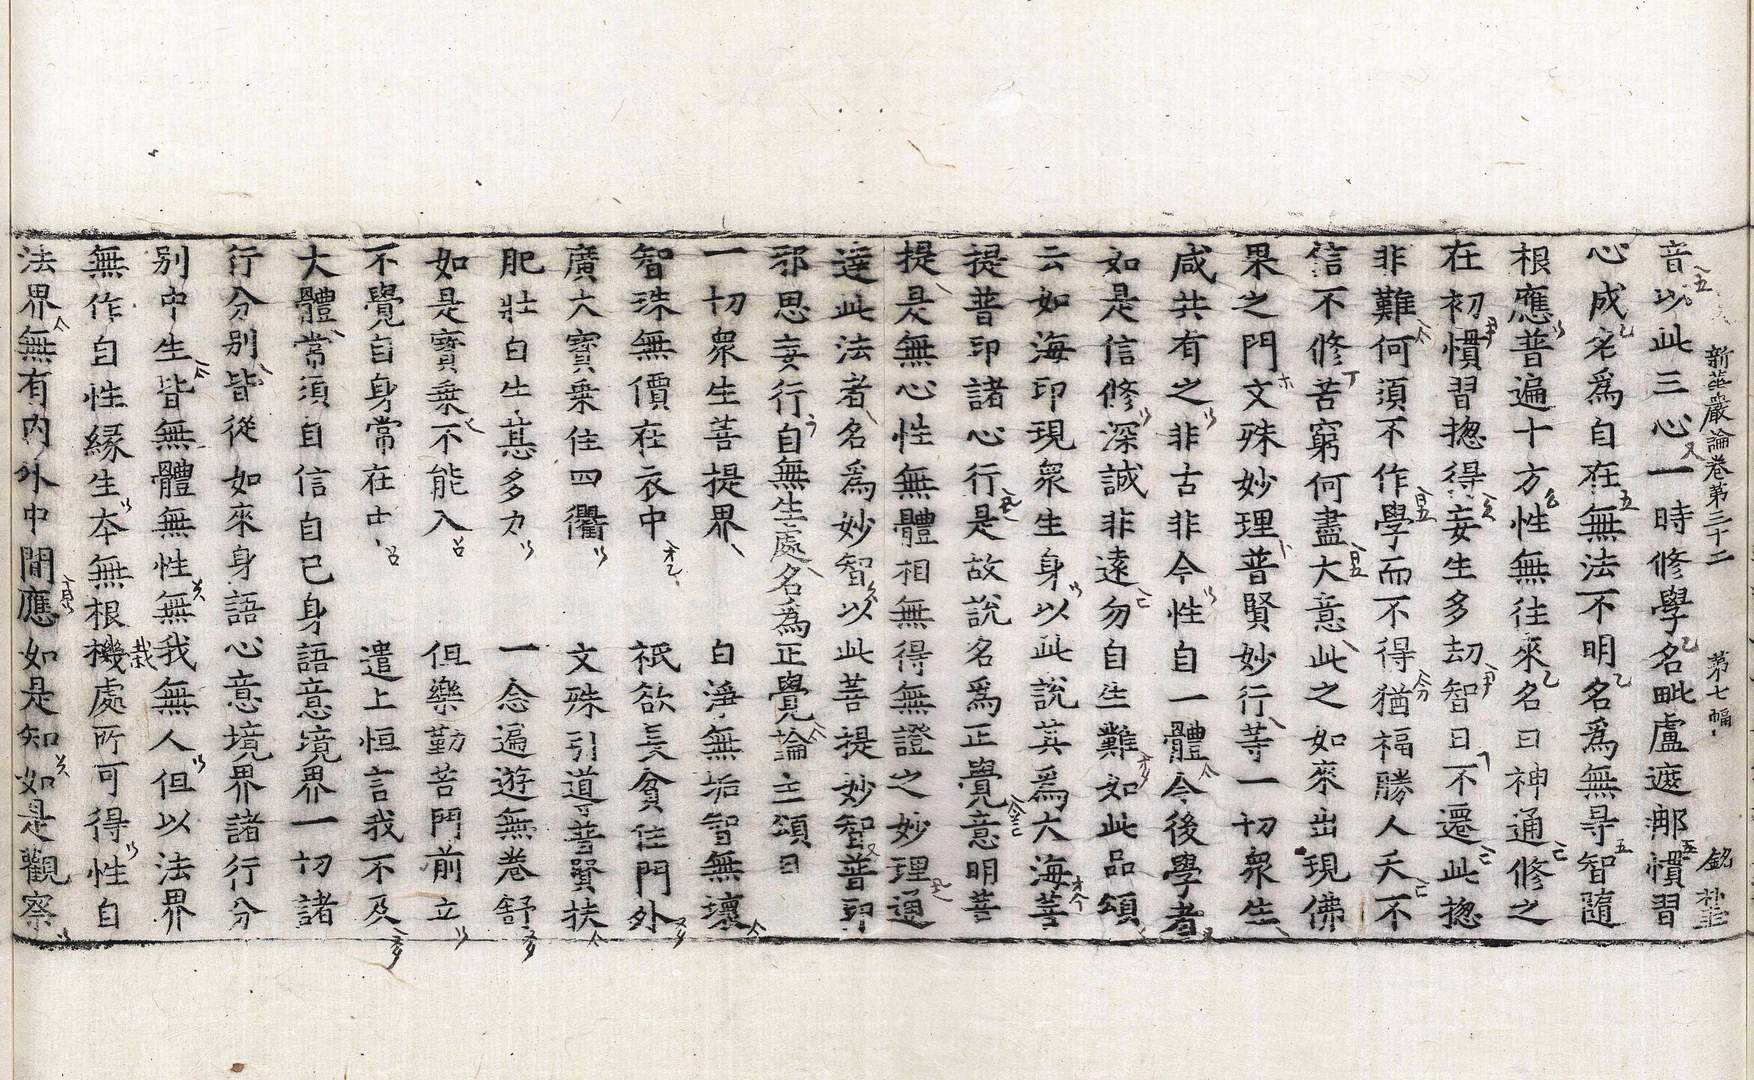 新華嚴論卷第三十二 第七幅 銘 朴圭
音以此三心一時修學名毗盧遮那慣習
心成名爲自在無法不明名爲無㝵智隨
根應普遍十方性無往來名曰神通修之
在初慣習揔得妄生多劫智日不遷此揔
非難何須不作學而不得猶福勝人天不
信不修苦窮何盡大意此之如來出現佛
果之門文殊妙理普賢妙行等一切衆生
咸共有之非古非今性自一體今後學者
如是信修深誠非遠勿自生難如此品頌
云如海印現衆生身以此說其爲大海菩
提普印諸心行是故說名爲正覺意明菩
提是無心性無體相無得無證之妙理通
達此法者名爲妙智以此菩提妙智普印
邪思妄行自無生處名爲正覺論主頌曰
一切衆生菩提界 白淨無垢智無壞
智珠無價在衣中 祇欲長貧住門外
廣大寶乘住四衢 文殊引道普賢扶
肥壯白牛甚多力 一念遍遊無卷舒
如是寶乘不能入 但樂勤苦門前立
不覺自身常在中 遣上恒言我不及
大體常須自信自己身語意境界一切諸
行分別皆從如來身語心意境界諸行分
別中生皆無體無性無我無人但以法界
無作自性緣生本無根機處所可得性自
法界無有內外中間應如是知如是觀察